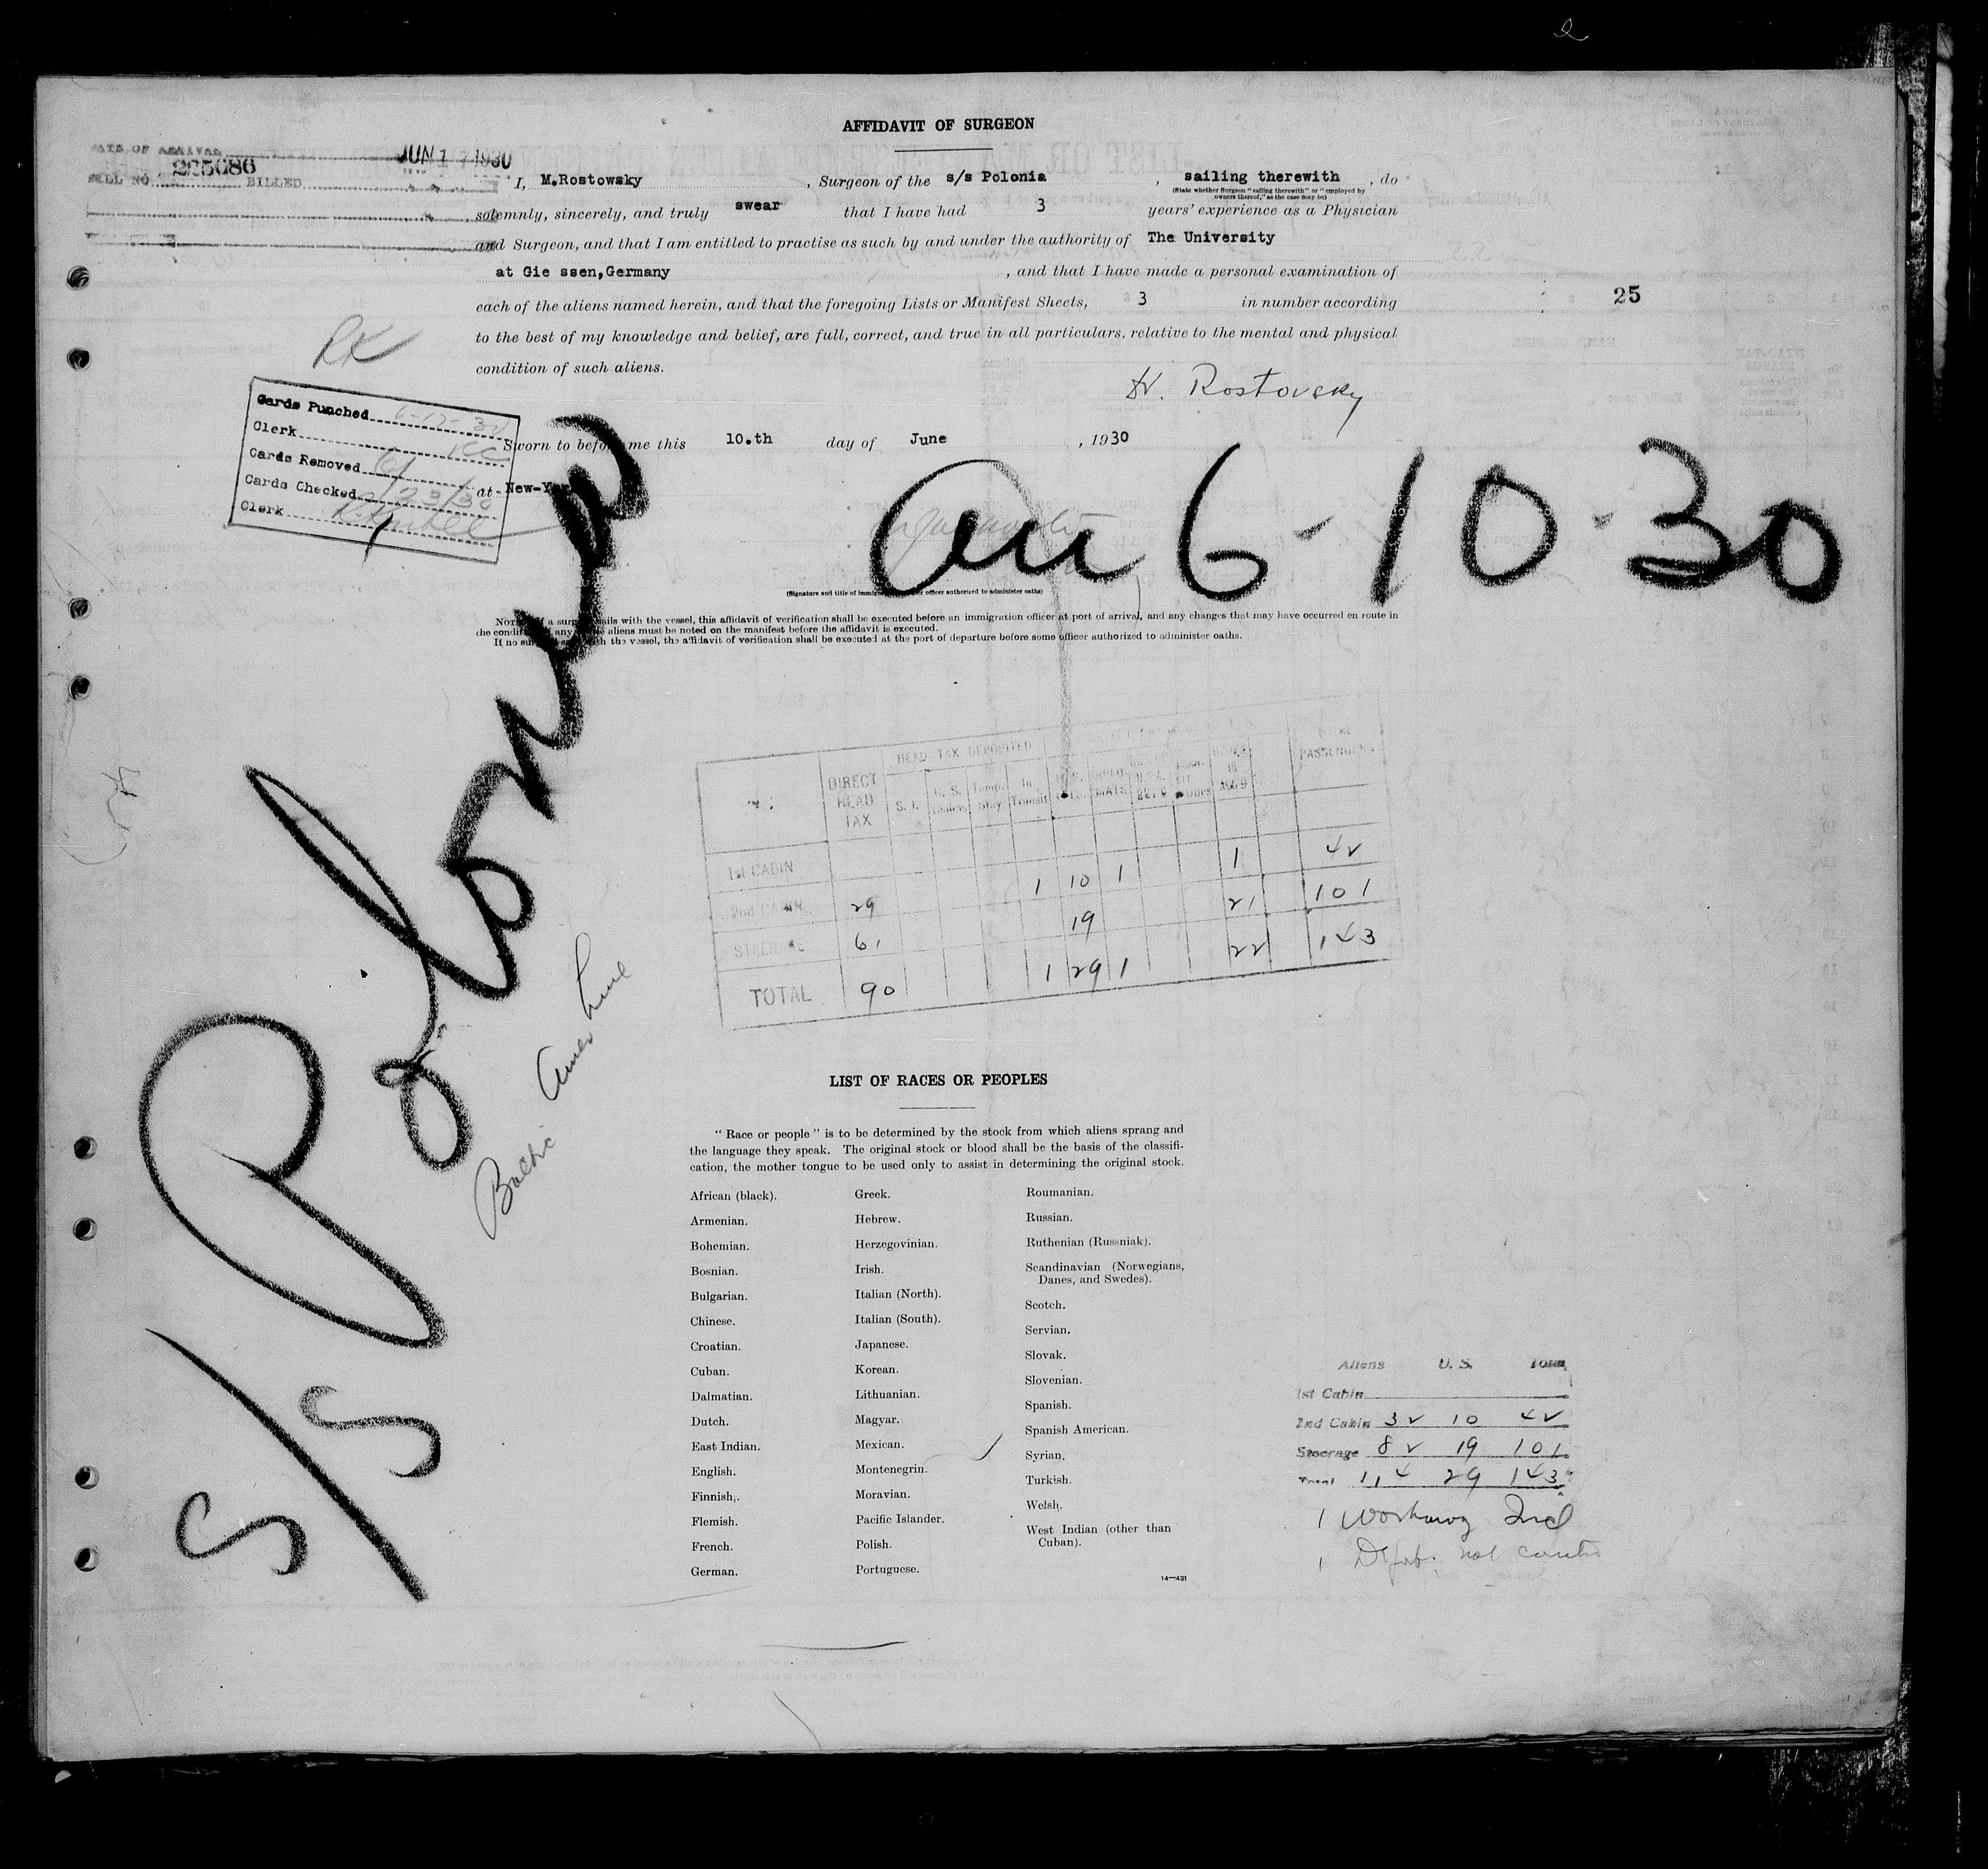 AFFIDAVIT OF SURGEON
DATE OF ARRIVAL JUN 17 1930
BILL NO. 225686 BILLED
I, M.Rostowsky, Surgeon of the s/s Polonia, sailing therewith, do
(State whether Surgeon "sailing therewith" or "employed by owners thereof," as the case may be)
solemnly, sincerely, and truly swear that I have had 3 years' experience as a Physician
and Surgeon, and that I am entitled to practise as such by and under the authority of The University
at Gie ssen,Germany, and that I have made a personal examination of
each of the aliens named herein, and that the foregoing Lists or Manifest Sheets, 3 in number according
25
to the best of my knowledge and belief, are full, correct, and true in all particulars, relative to the mental and physical
condition of such aliens.
Dr. Rostovsky
RK
Cards Punched 6-17-30
Clerk KC
Cards Removed 61
Cards Checked 23/30
Clerk
Sworn to before me this 10.th day of June, 1930
at New-York
Arr 6-10-30
(Signature and title of immigration officer or officer authorized to administer oaths)
NOTE.—If a surgeon sails with the vessel, this affidavit of verification shall be executed before an immigration officer at port of arrival, and any changes that may have occurred on route in
the condition of any of the aliens must be noted on the manifest before the affidavit is executed.
If no surgeon sails with the vessel, the affidavit of verification shall be executed at the port of departure before some officer authorized to administer oaths.
S/S Polonia
Baltic Amer Line
HEAD TAX DEPOSITED
DIRECT HEAD TAX S. I. U. S. Temp. Stay In Transit U. S. DIPLOMATS TOTAL PASSENGERS
1st CABIN
2nd CABIN 29 1 10 1 1 42
STEERAGE 61 19 21 101
TOTAL 90 1 29 1 22 143
LIST OF RACES OR PEOPLES
"Race or people" is to be determined by the stock from which aliens sprang and
the language they speak. The original stock or blood shall be the basis of the classifi-
cation, the mother tongue to be used only to assist in determining the original stock.
African (black).
Armenian.
Bohemian.
Bosnian.
Bulgarian.
Chinese.
Croatian.
Cuban.
Dalmatian.
Dutch.
East Indian.
English.
Finnish.
Flemish.
French.
German.
Greek.
Hebrew.
Herzegovinian.
Irish.
Italian (North).
Italian (South).
Japanese.
Korean.
Lithuanian.
Magyar.
Mexican.
Montenegrin.
Moravian.
Pacific Islander.
Polish.
Portuguese.
Roumanian.
Russian.
Ruthenian (Russniak).
Scandinavian (Norwegians,
Danes, and Swedes).
Scotch.
Servian.
Slovak.
Slovenian.
Spanish.
Spanish American.
Syrian.
Turkish.
Welsh.
West Indian (other than
Cuban).
14—431
Aliens U. S. Total
1st Cabin
2nd Cabin 32 10 42
Steerage 82 19 101
Total 114 29 143
1 Workaway 2nd